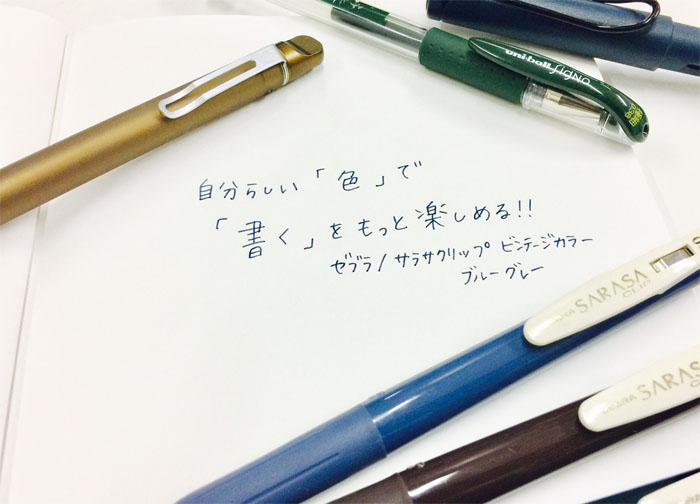 uni-ball Signo
自分らしい「色」で
「書く」をもっと楽しめる!!
ゼブラ/サラサクリップ ビンテージカラー
ブルーグレー
SARASA
CLIP
SARASA